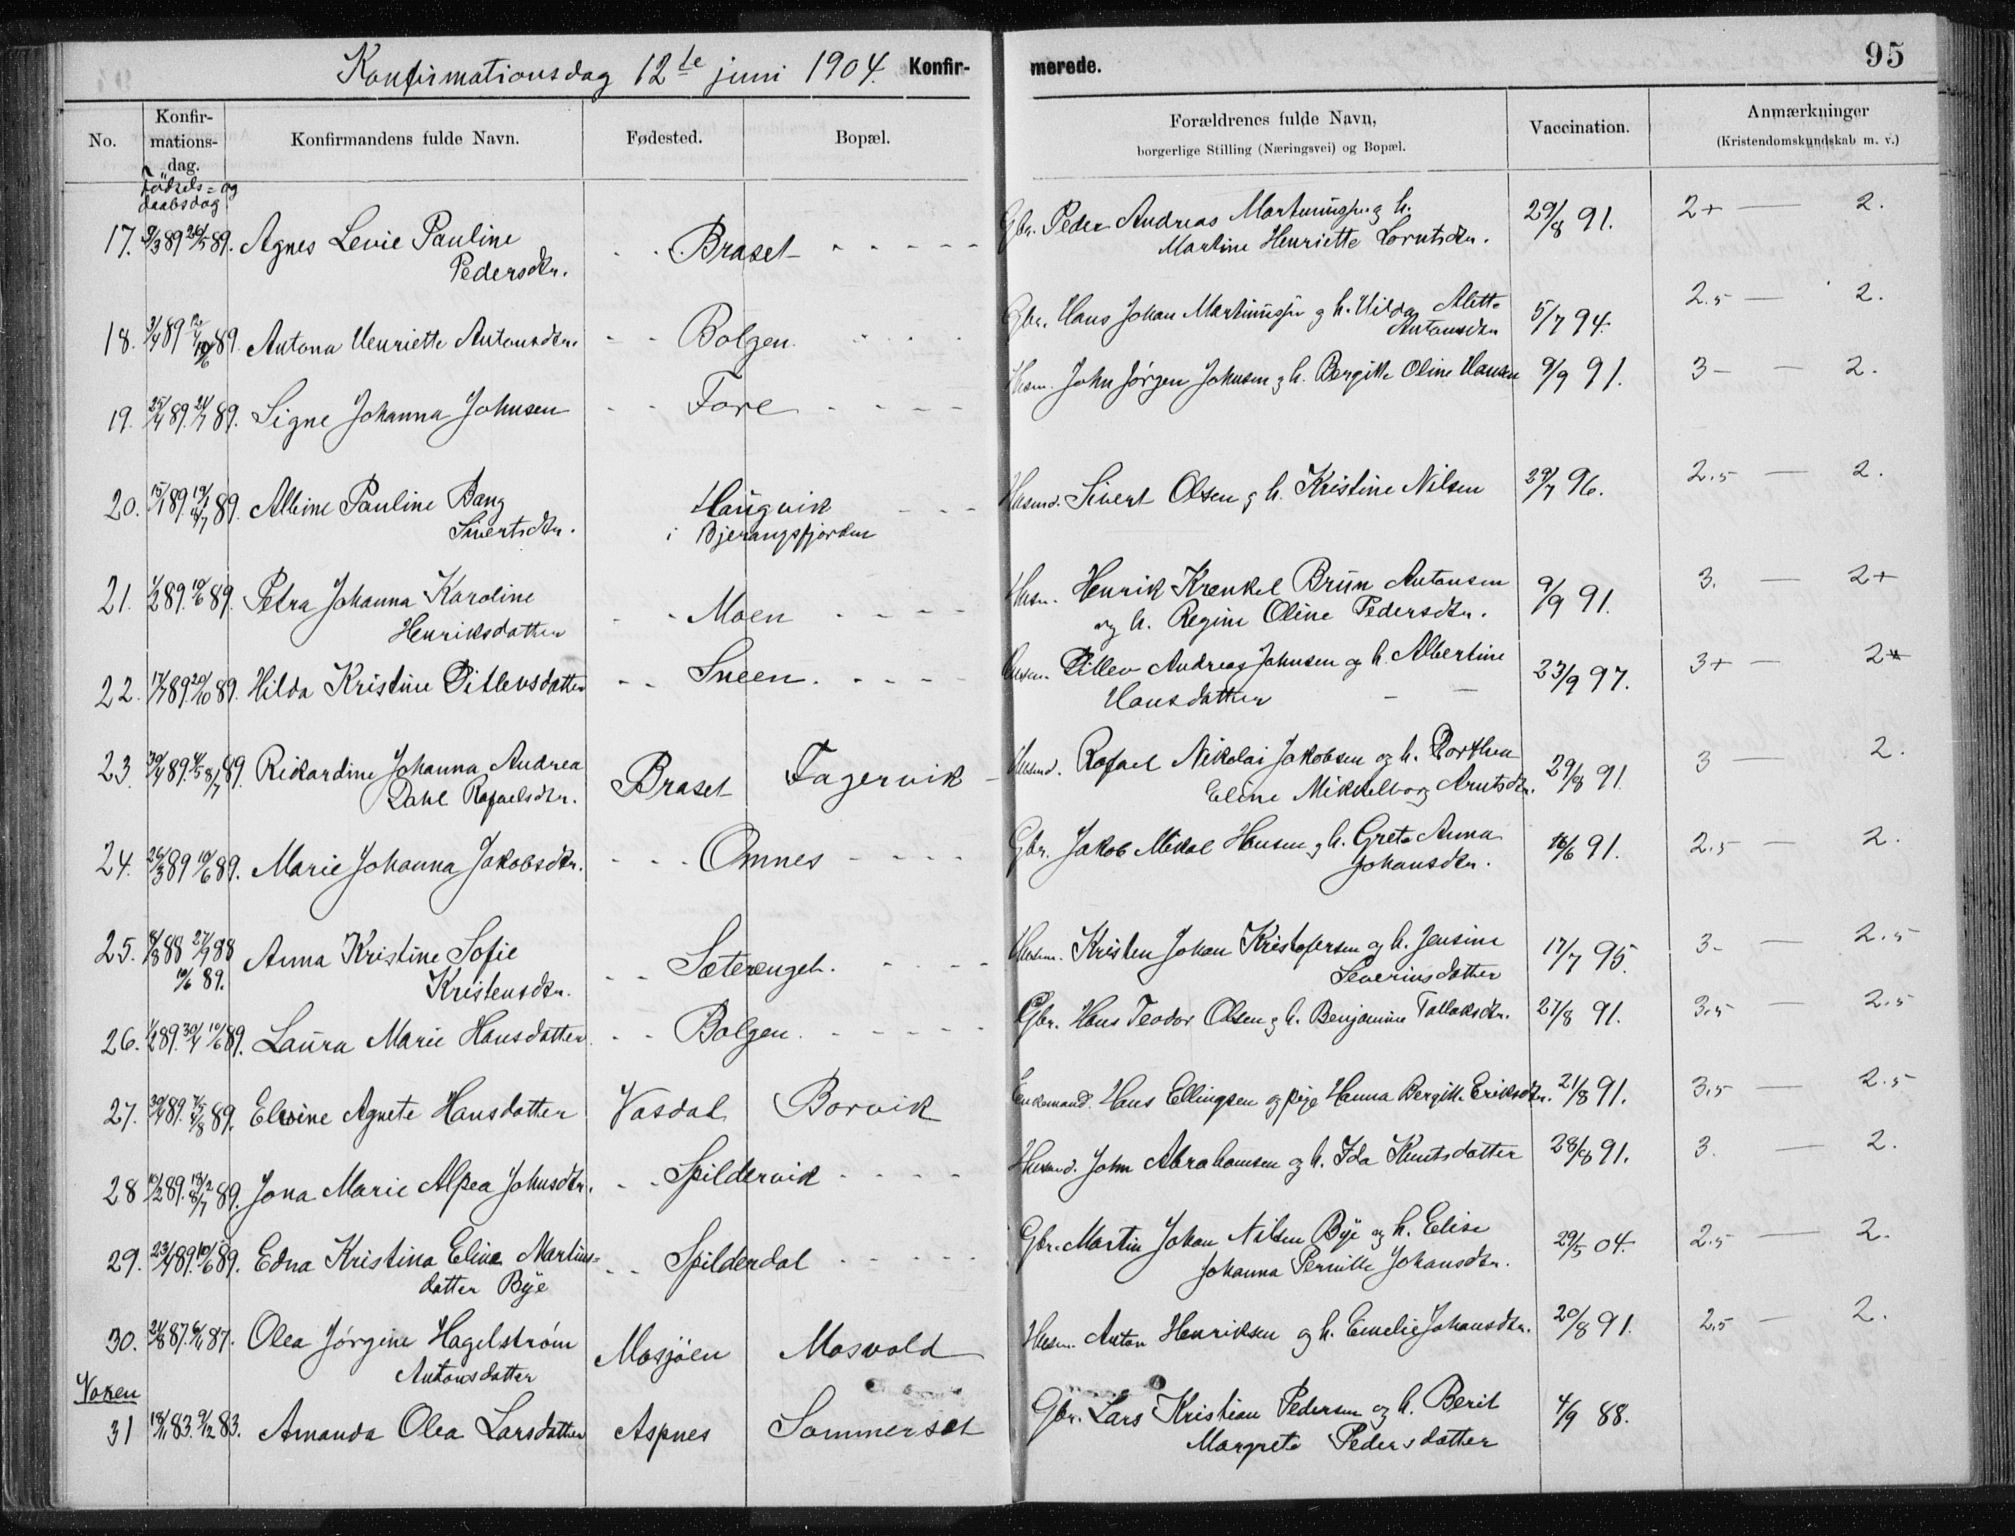 Konfirmationsdag 12te juni 1904. Konfir- merede. 95
No. Konfir-mations-dag. Konfirmandens fulde Navn. Fødested. Bopæl. Forældrenes fulde Navn, borgerlige Stilling (Næringsvei) og Bopæl. Vaccination. Anmærkninger (Kristendomskundskab m. v.)
Fødsels- og daabsdag
17. 89 89. Agnes Levie Pauline Braset Gbr. Peder Andreas h. 29/8 91. 2+ — 2.
Pedersdtr. Martine Henriette Lorntsdtr.
18. 3/4 89 89. Antona Henriette Antonsdtr. Bolgen Gbr. Hans Johan g h. Hilda Alette 5/7 94. 2.5 — 2.
Antonsdtr
19. 25/4 89. 21/7 89. Signe Johanna Johnsen Fore Husm. John Jørgen Johnsen g h. Bergitte Oline Hansen 9/9 91. 3 — 2.
20. 15/1 89. 89. Albine Pauline Bang Haugvik Husmd. Sivert Olsen g h. Kristine Nilsen 29/7 96. 2.5 — 2.
Sivertsdtr. i Bjerangsfjorden
21. 1/2 89. 10/6 89. Petra Johanna Karoline Moen Husm. Henrik Krenkel Brun Antonsen 9/9 91. 3. — 2+
Henriksdatter og h. Regine Oline Pedersdtr.
22. 17/7 89. 20/10 89. Hilda Kristine Ditlevsdatter Sneen Husm. Ditlev Andreas Johnsen og h. Albertine 23/9 97. 3+ — 2
Hansdatter — —
23. 30/4 89. 8/7 89. Rickardine Johanna Andrea Braset Fagervik Husmd. Rafael Nikolai Jakobsen og h. Dorthea 29/8 91. 3 — 2.
Dahl Rafaelsdtr. Eline Mikkelborg Arntsdtr.
24. 26/3 89 10/6 89. Marie Johanna Jakobsdtr. Omnes Gbr. Jakob Mikal Hansen g h. Grete Anna 16/6 91. 2.5 — 2.
Johansdtr.
25. 8/8 88 27/9 88 Anna Kristine Sofie Sæterenget. Husm. Kristen Johan Kristofersen og h. Jensine 17/7 95. 3- — 2.5
10/6 89. Kristensdtr. Severinsdatter
26. 1/2 89. 30/4 10/6 89. Laura Marie Hansdatter Bolgen. Gbr. Hans Teodor Olsen g h. Benjamine Tollaksdtr. 27/8 91. 3.5 — 2.5
27. 30/4 89. 89. Elvine Agnete Hansdatter Vasdal Borvik Enkemand. Hans Ellingsen og pige Hanna Bergitte Eriksdtr. 21/8 91. 3.5 — 2.5
28 10/2 89. 8/7 89. Jona Marie Alpea Johnsdtr. Spildervik Husmd. John Abrahamsen og h. Ida Knutsdatter 28/8 91. 3. — 2.
29. 23/4 89. 10/6 89. Edna Kristina Elina Martins- Spilderdal Gbr. Martin Johan Nilsen Bye og h. Elise 29/5 04. 2.5 — 2.
datter Bye Johanna Pernille Johansdtr.
30. 24/8 87. 6/11 87. Olea Jørgine Hagelstrøm Mosjøen Mosvold Husm. Anton Henriksen og h. Emelie Johansdtr. 20/8 91. 2.5 — 2.
Antonsdatter
Voxen
31 18/11 83. 9/12 83. Amanda Olea Larsdatter Aspnes Sommerset Gbr. Lars Kristian Pedersen og h. Berit 4/9 88.
Margrete Pedersdatter